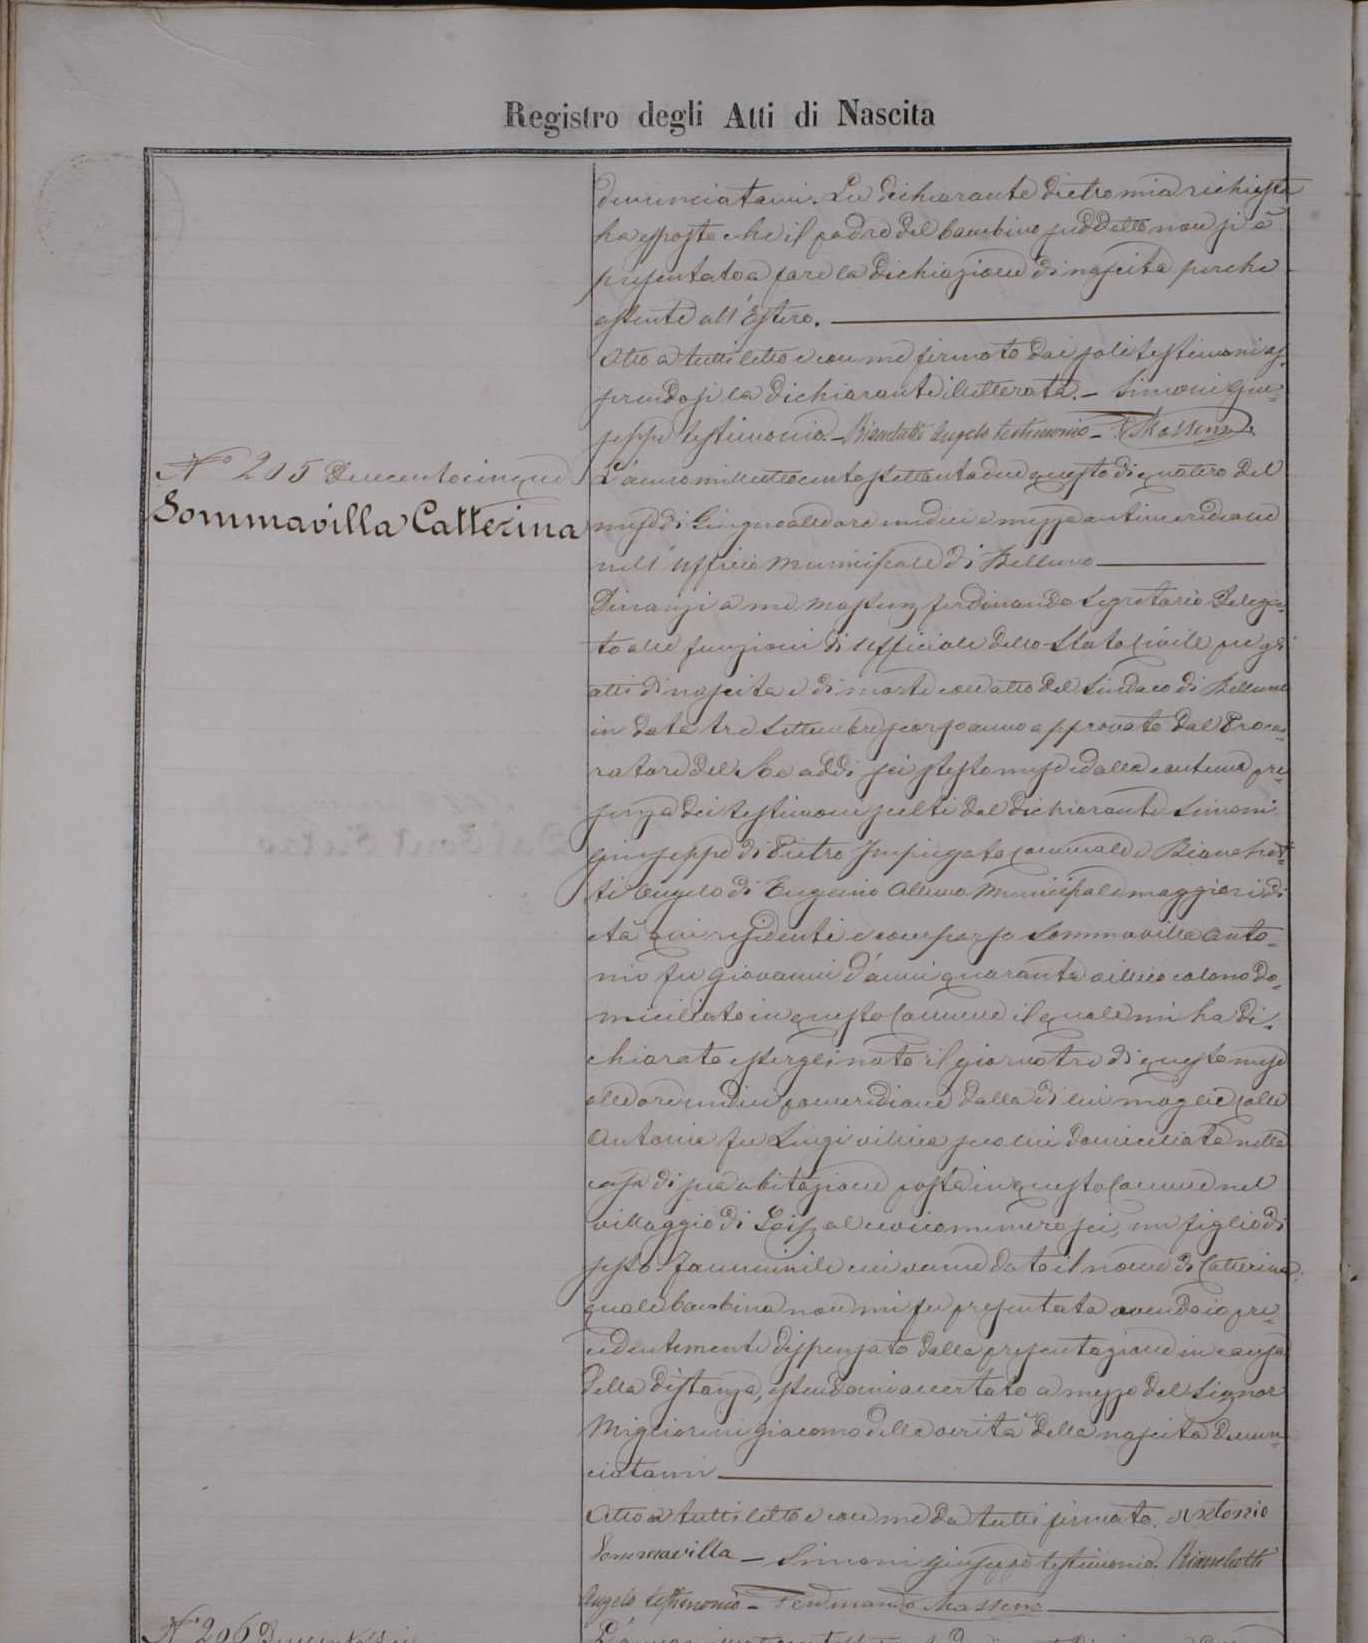 Registro degli Atti di Nascita
denunciatami. La dichiarante dietro mia richiesta
ha esposto che il padre del bambino suddetto non si è
presentato a fare la dichiazione di nascita perchè
assente all'Estero.
Atto a tutti letto e con me firmato dai soli testimoni es-
sendosi la dichiarante illetterata. - Simoni Giu-
seppe testimonio - Bianchetti Angelo testimonio - F Massenz
N° 205 Duecentocinque
Sommavilla Catterina
L'anno milleottocentosettantadue questo dì quattro del
mese di Giugno alle ore undici e mezza antimeridiane
nell'Ufficio Municipale di Belluno
Dinanzi a me Massenz Ferdinando Segretario Delega-
to alle funzioni di Ufficiale dello Stato Civile per gli
atti di nascita e di morte con atto del Sindaco di Belluno
in data tre Settembre scorso anno approvato dal Procu-
ratore del Re addì sei stesso mese ed alla continua pre-
senza dei testimoni scelti dal dichiarante Simoni
Giuseppe di Pietro Impiegato Comunale e Bianchet-
ti Angelo di Eugenio Allievo Municipale maggiori di
età qui residenti è comparso Sommavilla Anto-
nio fu Giovanni d'anni quaranta villico colono do-
miciliato in questo Comune il quale mi ha di-
chiarato essergli nato il giorno tre di questo mese
alle ore undici pomeridiane dalla di lui moglie Colle
Antonia fu Luigi villica seco lui domiciliata nella
casa di sua abitazione posta in questo Comune nel
villaggio di al civico numero sei, un figlio di
sesso femminile cui venne dato il nome di Catterina,
quale bambina non mi fu presentata avendolo pre-
cedentemente dispensato dalla presentazione in causa
della distanza, essendomi accertato a mezzo del Signor
Migliorini Giacomo della verità della nascita denun-
ciatami
Atto a tutti letto e con me da tutti firmato. Antonio
Sommavilla - Simoni Giuseppe testimonio. Bianchetti
Angelo testimonio - Ferdinando Massenz
N° 206